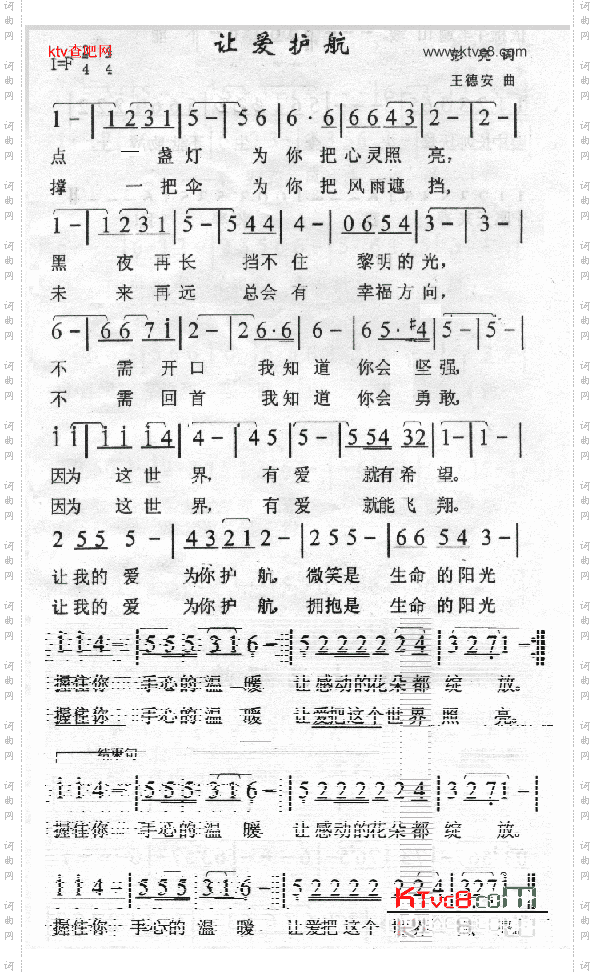 让爱护航
ktv查吧网
www.ktvc8.com
1=F 4
4 4
彭亮 词
王德安 曲
1 - | 1 2 3 1 | 5 - | 5 6 | 6 · 6 | 6 6 4 3 | 2 - | 2 - |
点 一 盏 灯 为 你 把 心 灵 照 亮,
撑 一 把 伞 为 你 把 风 雨 遮 挡,
1 - | 1 2 3 1 | 5 - | 5 4 4 | 4 - | 0 6 5 4 | 3 - | 3 - |
黑 夜 再 长 挡 不 住 黎 明 的 光,
未 来 再 远 总 会 有 幸 福 方 向,
6 - | 6 6 7 i | 2 - | 2 6 · 6 | 6 - | 6 5 · #4 | 5 - | 5 - |
不 需 开 口 我 知 道 你 会 坚 强,
不 需 回 首 我 知 道 你 会 勇 敢,
i i | i i i 4 | 4 - | 4 5 | 5 - | 5 5 4 3 2 | 1 - | 1 - |
因为 这 世 界, 有 爱 就 有 希 望。
因为 这 世 界, 有 爱 就 能 飞 翔。
2 5 5 5 - | 4 3 2 1 2 - | 2 5 5 - | 6 6 5 4 3 - |
让 我的 爱 为你 护 航, 微 笑 是 生 命 的 阳光
让 我的 爱 为你 护 航, 拥 抱 是 生 命 的 阳光
i i 4 - | 5 5 5 3 1 6 - | 5 2 2 2 2 2 2 4 | 3 2 7 1 - :|
握 住 你 手 心 的 温 暖 让 感 动 的 花 朵 都 绽 放。
握 住 你 手 心 的 温 暖 让 爱 把 这 个 世 界 照 亮。
结束句
i i 4 - | 5 5 5 3 1 6 - | 5 2 2 2 2 2 2 4 | 3 2 7 1 - |
握 住 你 手 心 的 温 暖 让 感 动 的 花 朵 都 绽 放。
i i 4 - | 5 5 5 3 1 6 - | 5 2 2 2 2 2 2 4 | 3 2 7 1
握 住 你 手 心 的 温 暖 让 爱 把 这 个
KTvc8.com
词曲网